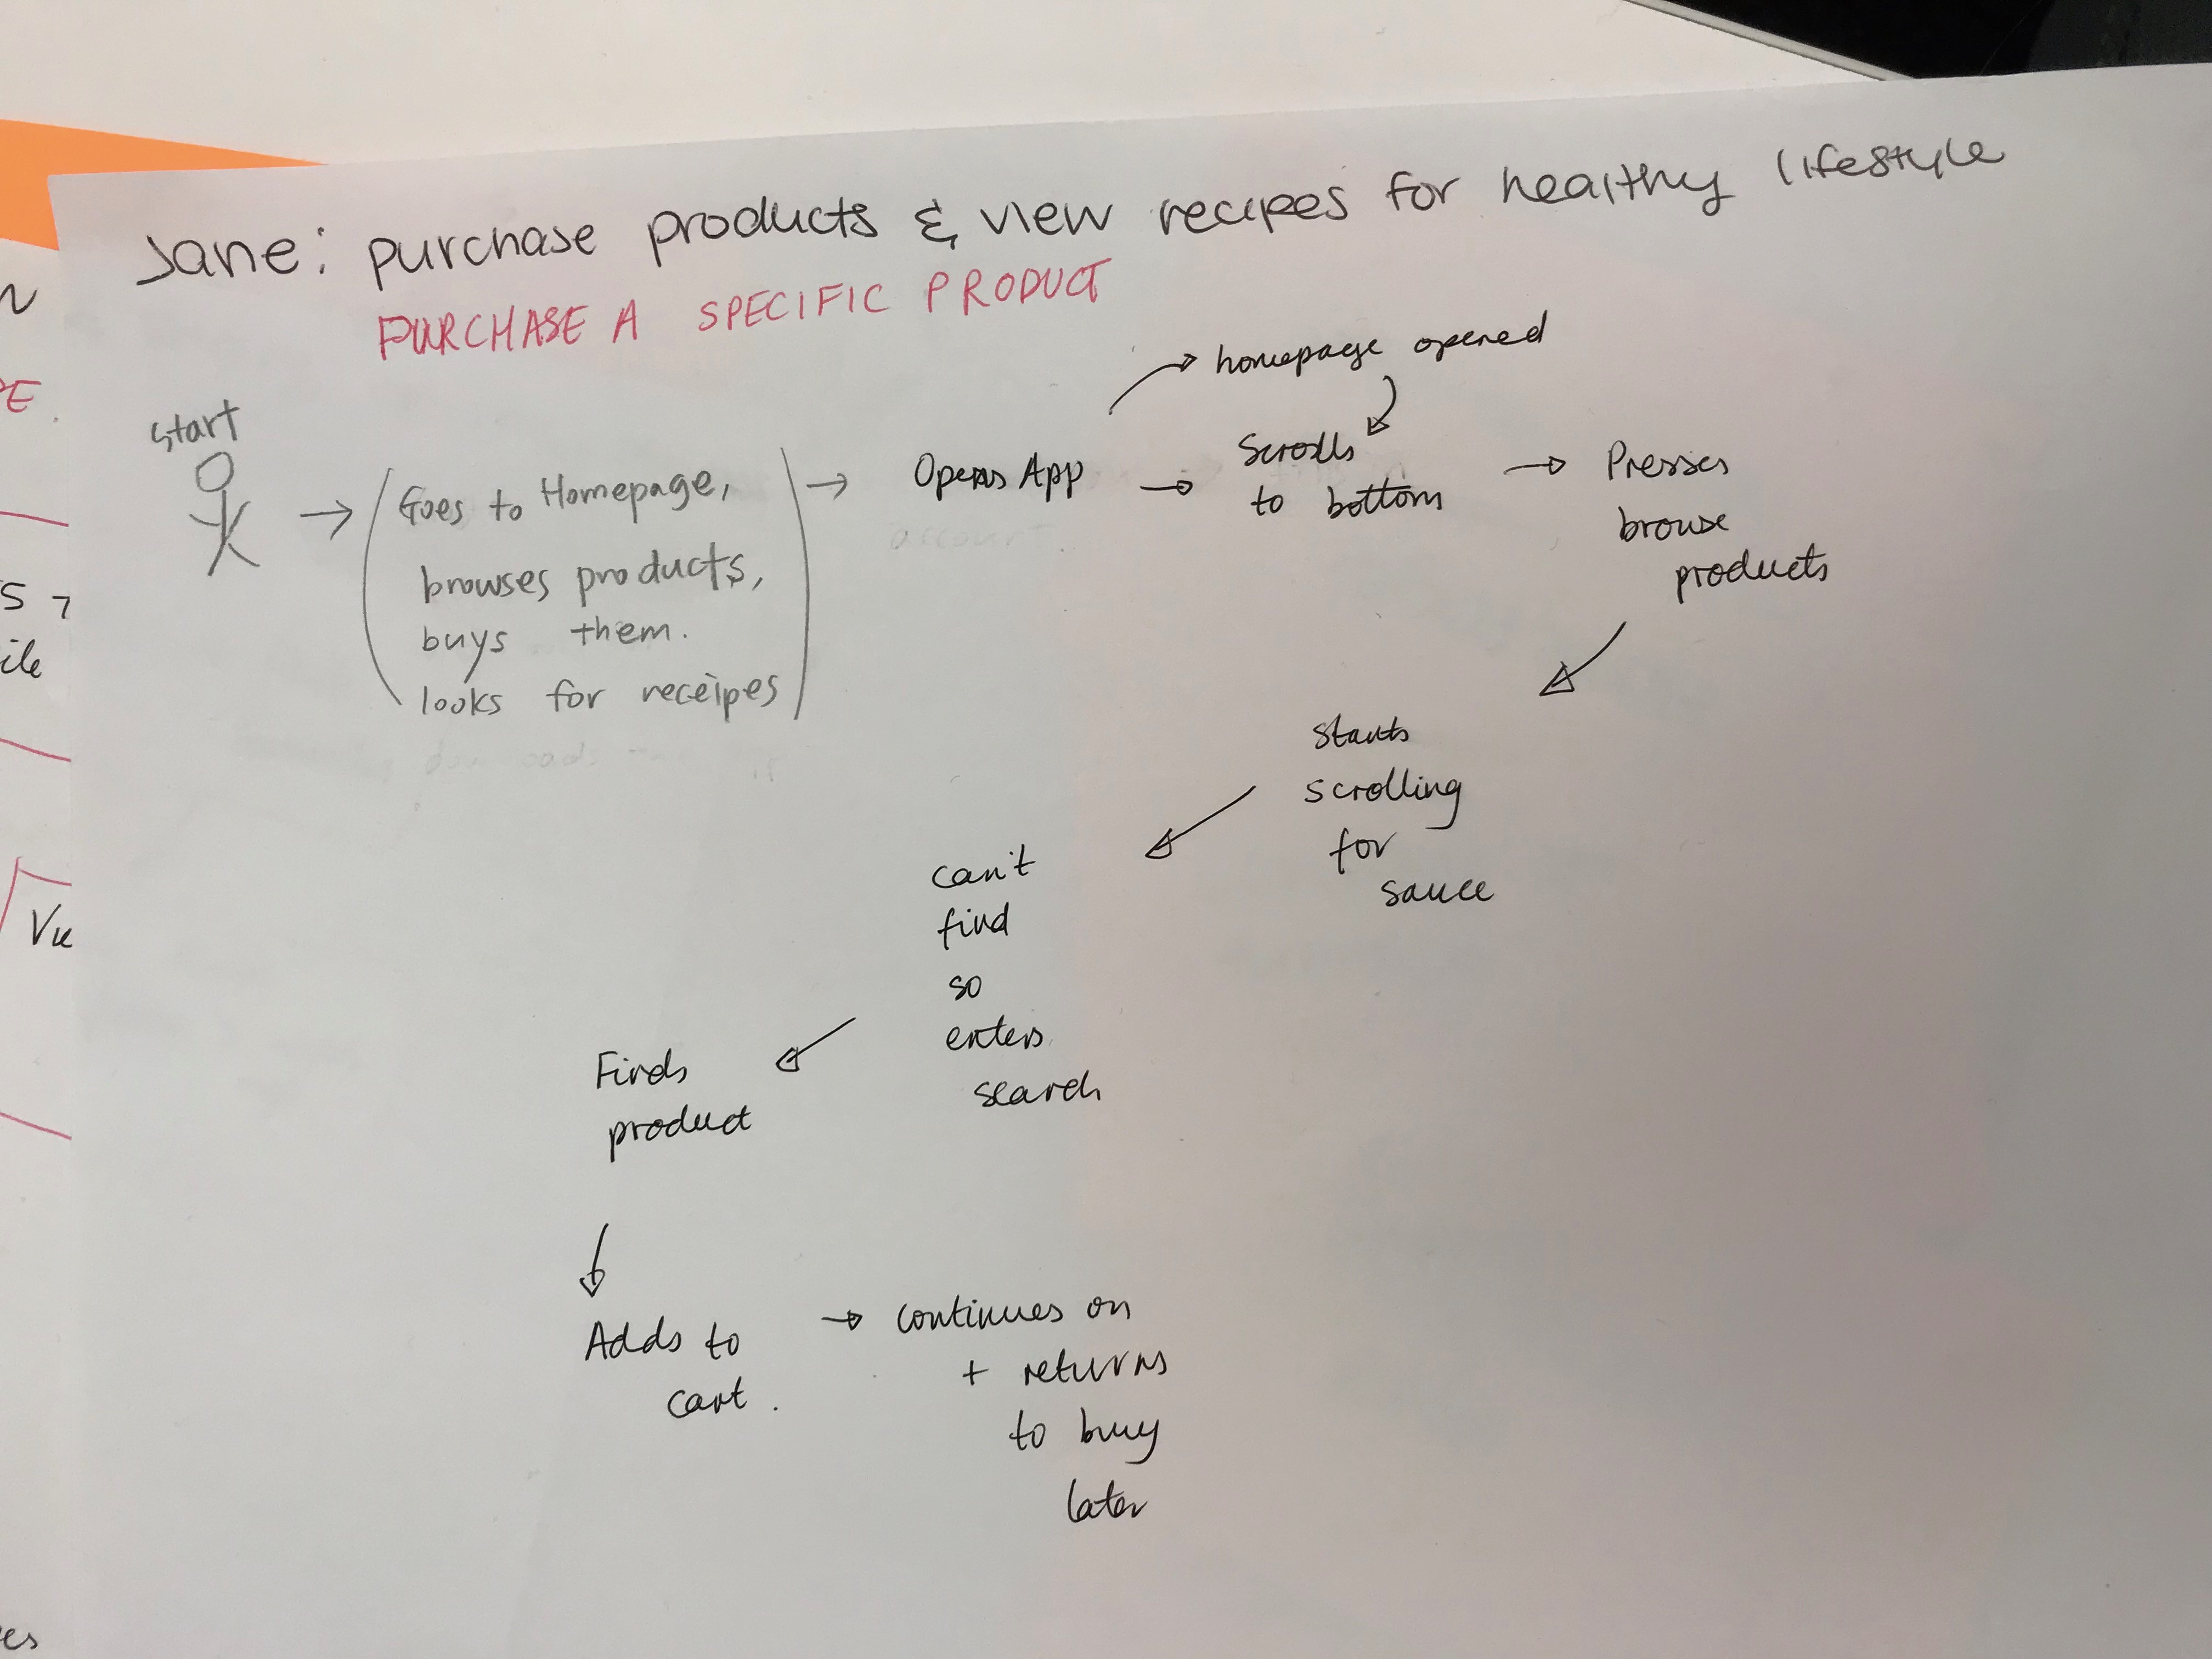 Jane: purchase products & view recipes for healthy lifestyle
PURCHASE A SPECIFIC PRODUCT
start
Goes to Homepage,
browses products,
buys them.
looks for receipes
Opens App
homepage opened
Scrolls
to bottom
Presses
browse
products
starts
scrolling
for
sauce
can't
find
so
enters
search
Finds
product
Adds to
cart.
continues on
+ returns
to buy
later
account